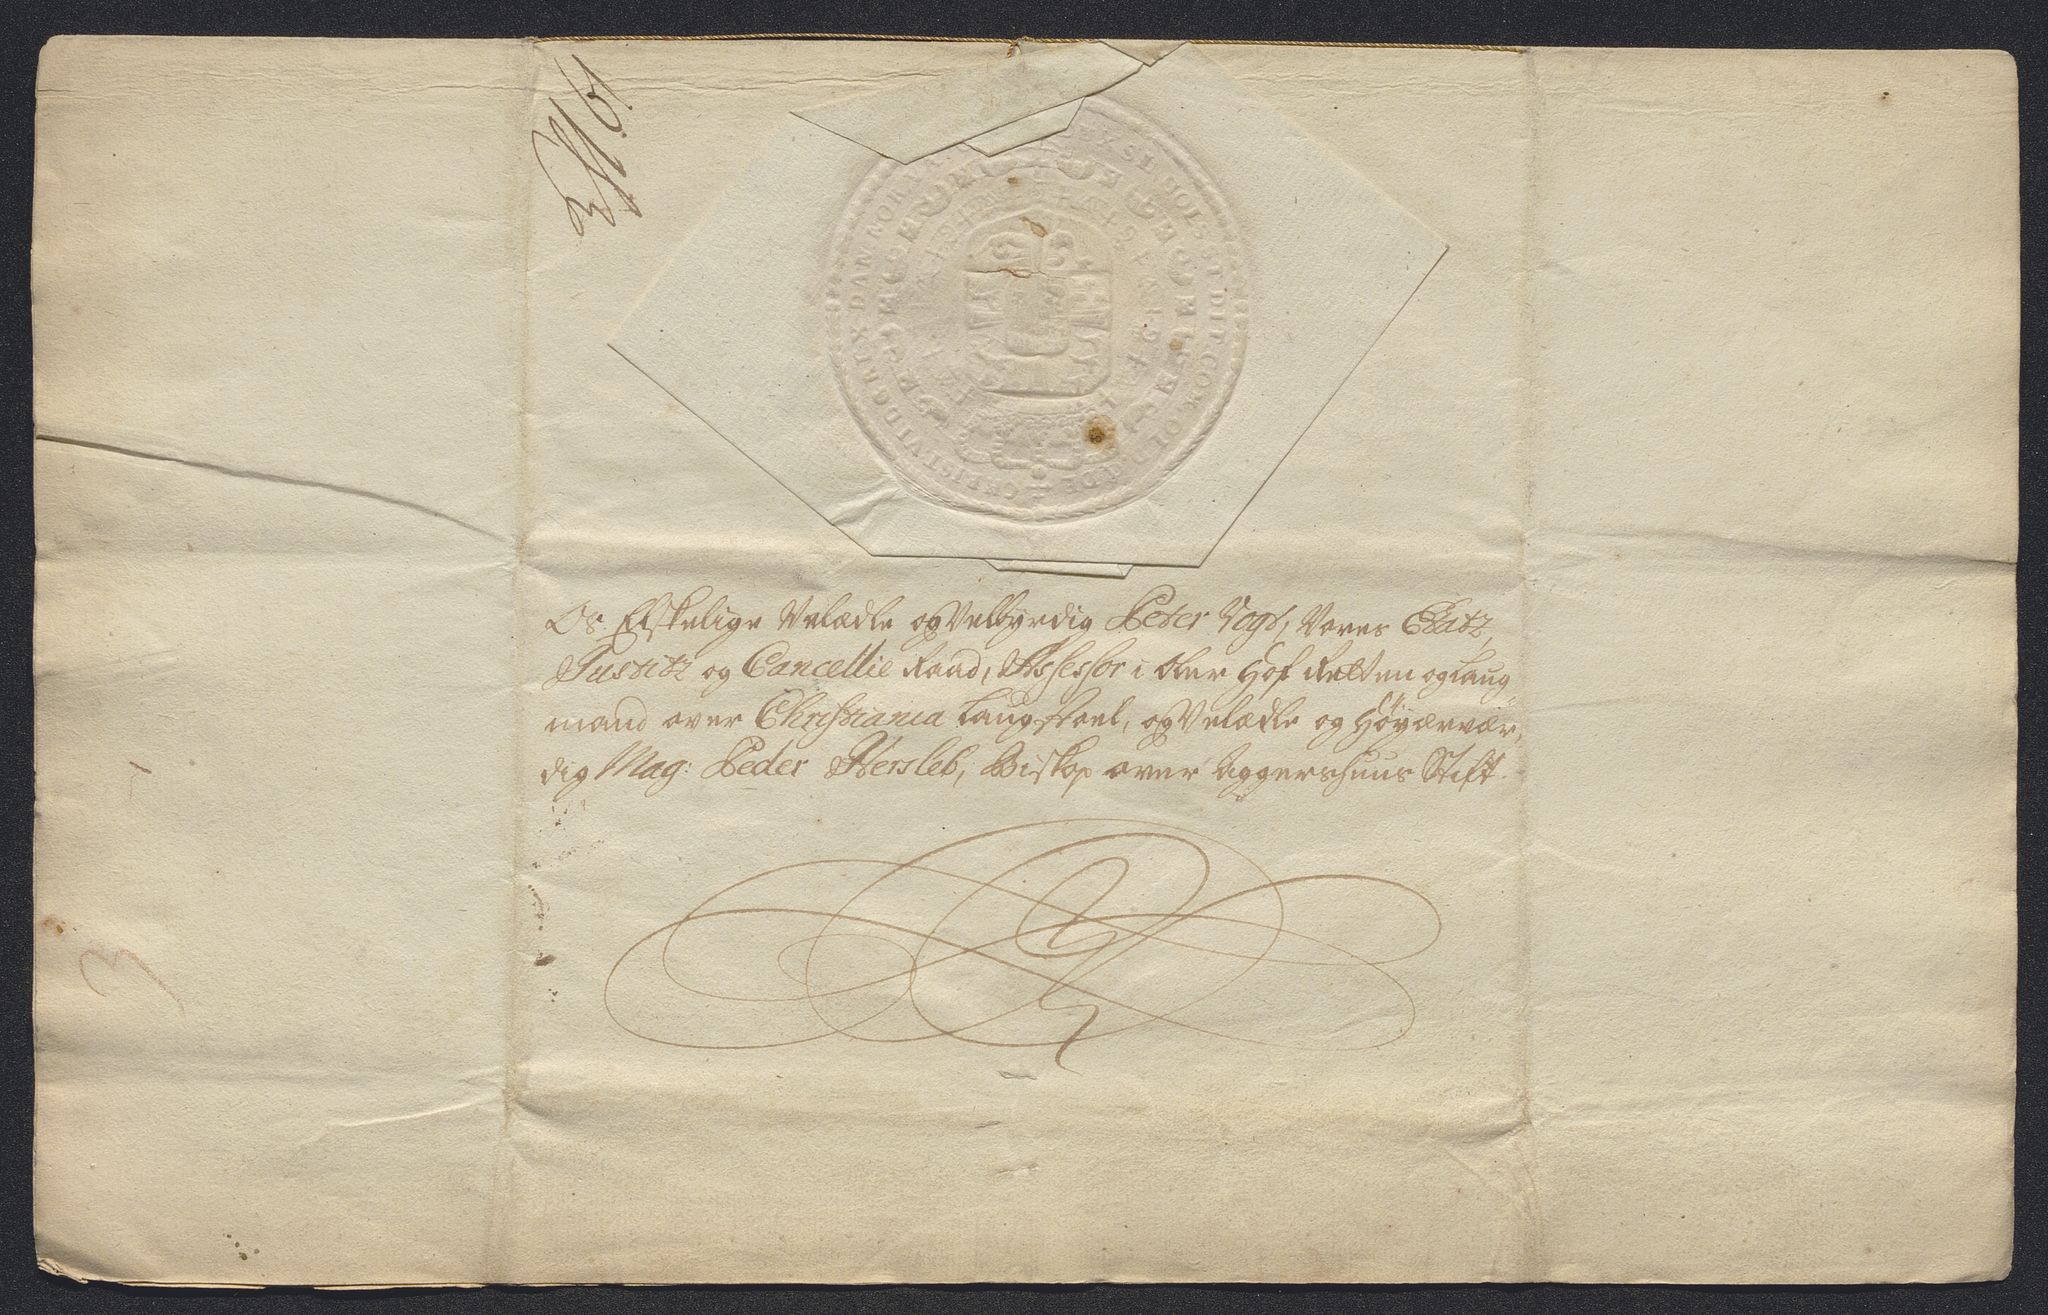 CHRIST VI D G REX DAN NOR V
SL HOLS ST DIT COM
DE
Os Elskelige Velædle og Velbyrdig Peter Vogt, Vores Etatz,
Justitz og Cancellie Raad, Assessor i Ober Hof Retten og Laug
mand over Christiania Laugstoel, og Velædle og Høyærvær,
dig Mag: Peder Hersleb, Biskop over Aggershuus Stift.
3